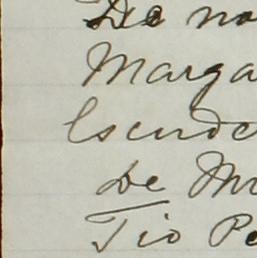 De no
Marga
Escude
De M
Tio Pe